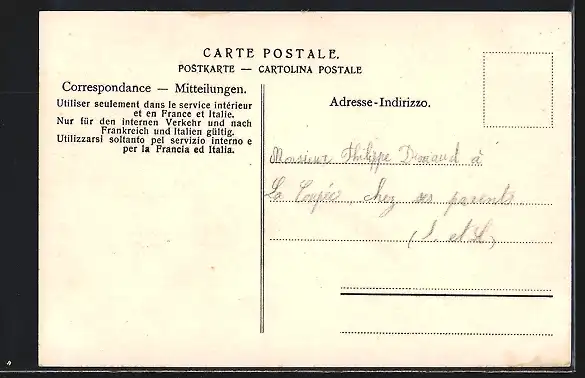 CARTE POSTALE.
POSTKARTE — CARTOLINA POSTALE
Correspondance — Mitteilungen.
Utiliser seulement dans le service intérieur
et en France et Italie.
Nur für den internen Verkehr und nach
Frankreich und Italien gültig.
Utilizzarsi soltanto pel servizio interno e
per la Francia ed Italia.
Adresse-Indirizzo.
Monsieur Philippe à
La Coupée, chez ses parents
(S. et L)